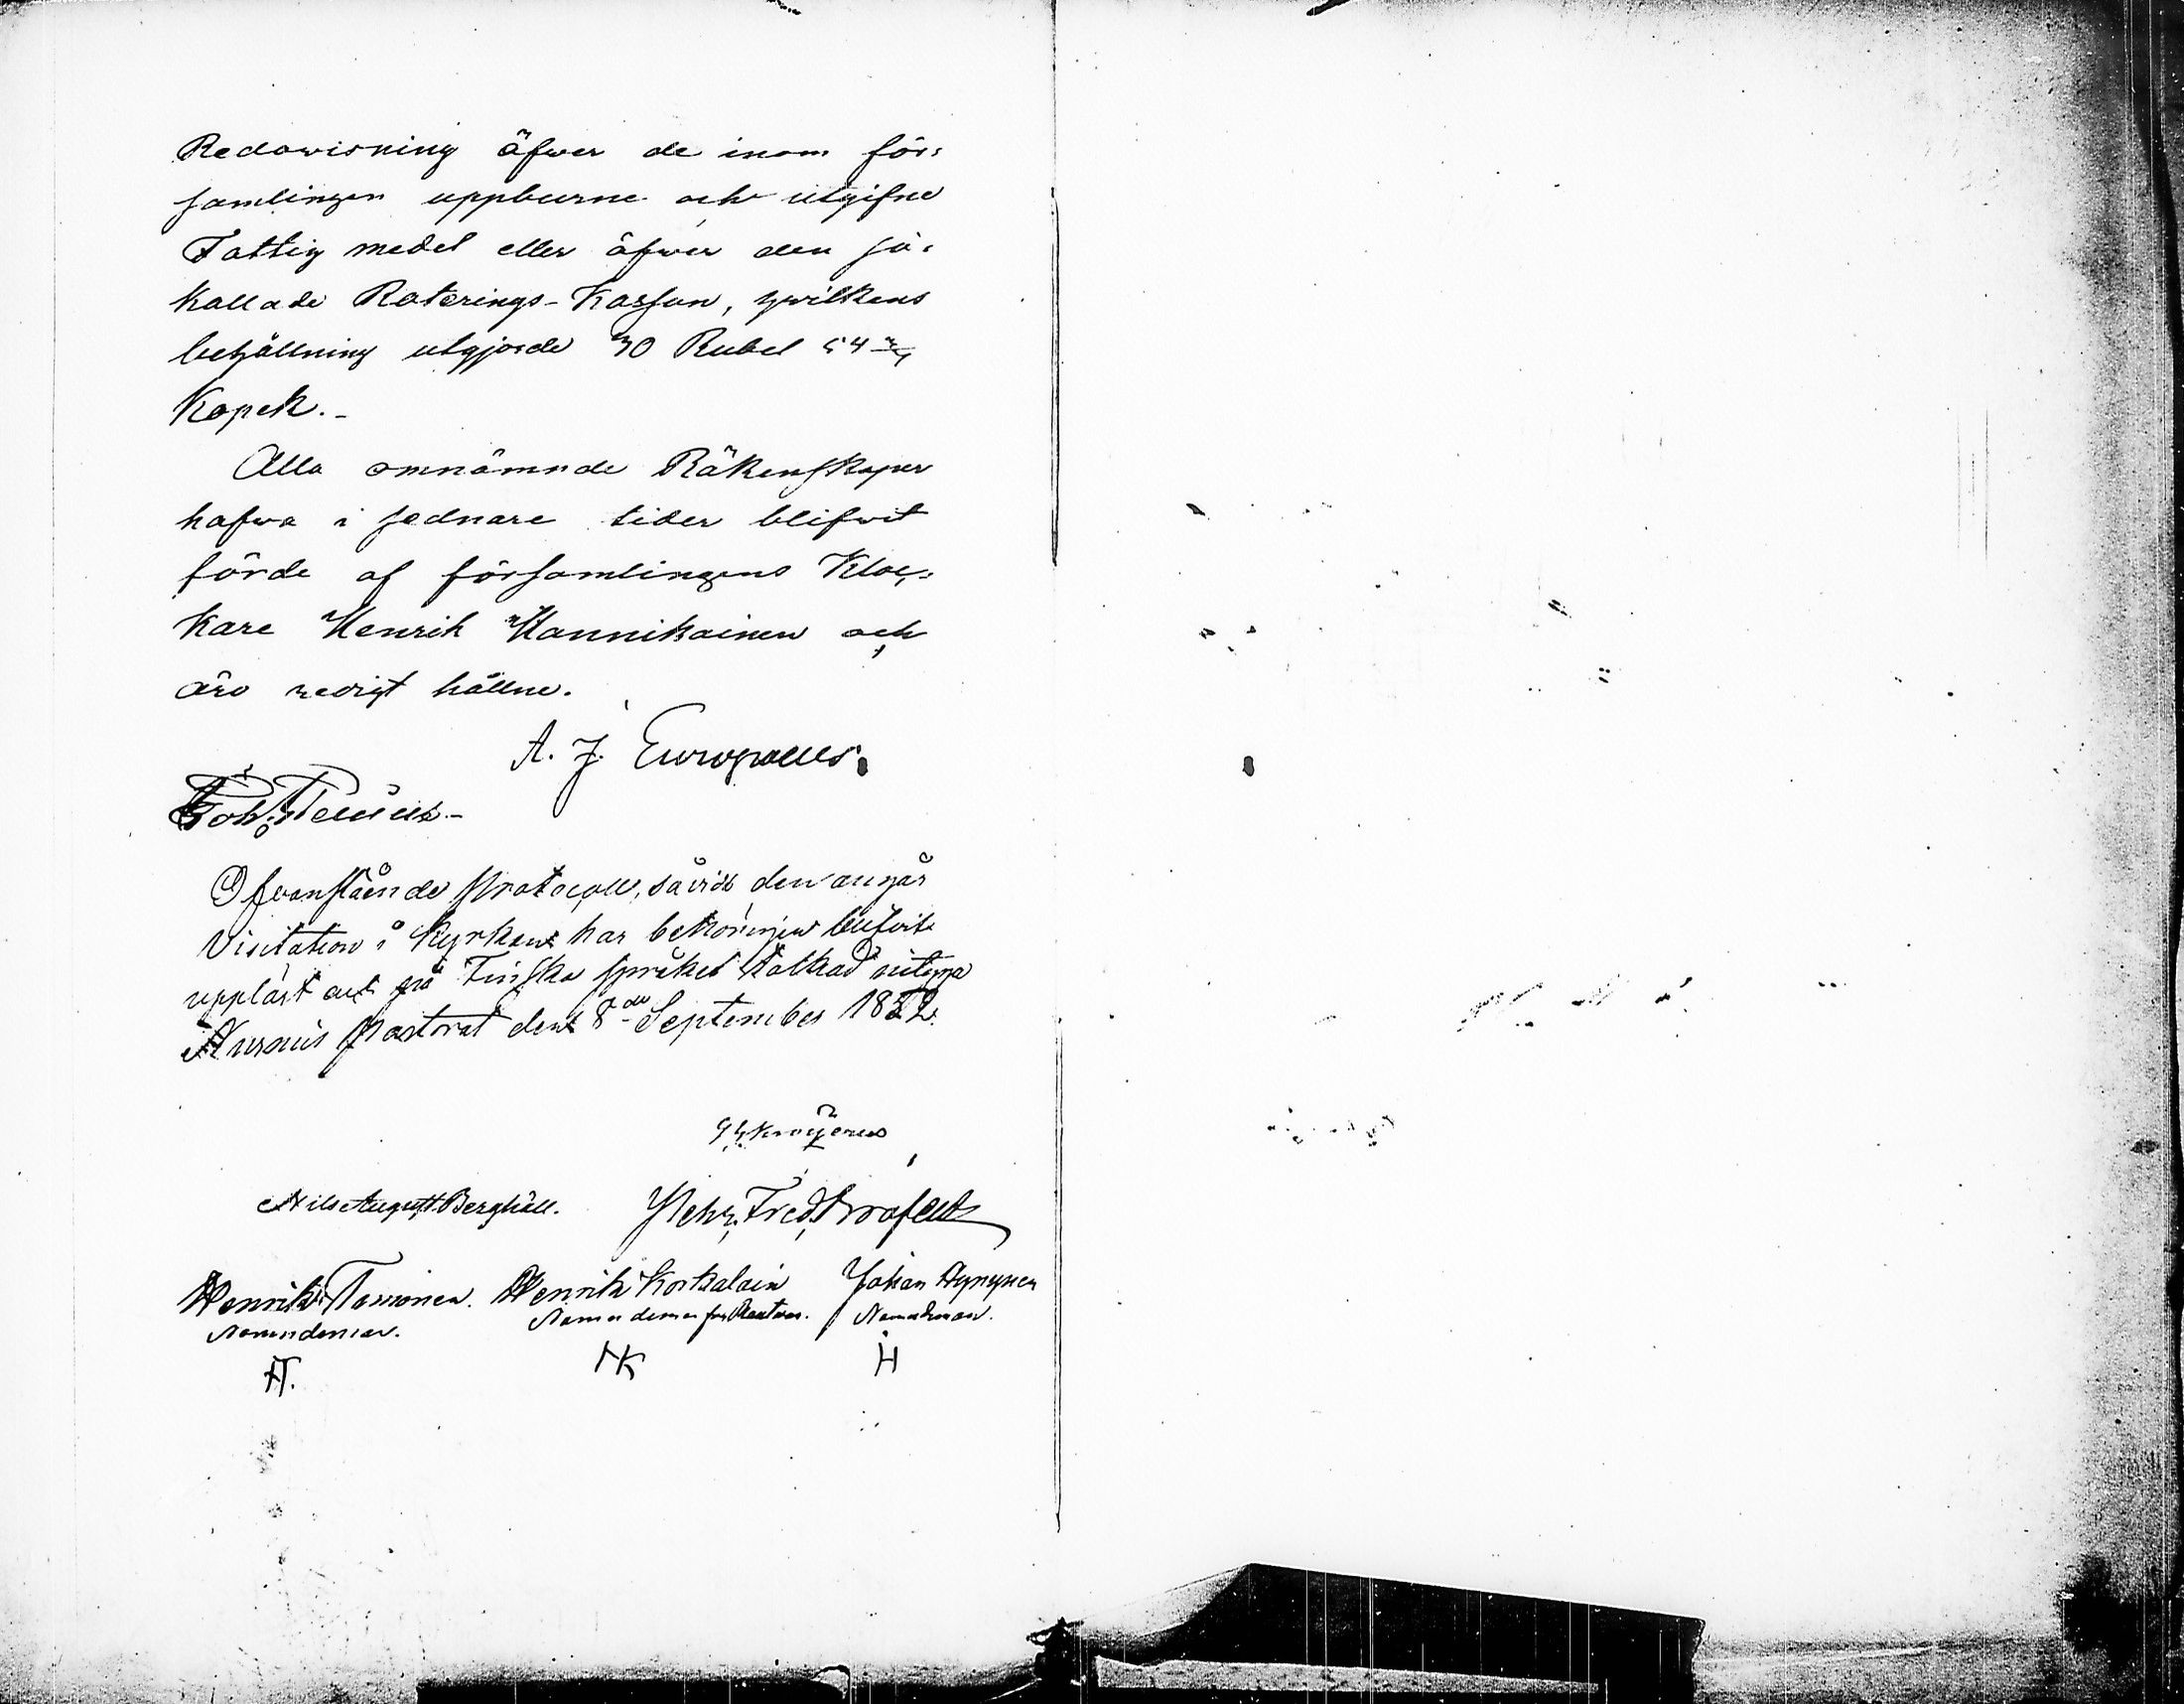 Redowisning öfwer de inom för=
samlingen uppburne och utgifne
Fattig medel eller öfwer den så=
kallade Roterings-Kassan, hwilkens
behållning utgjorde 30 Rubel 54 3/4
Kopek. -
Alla omnämnde Räkenskaper
hafwa i sednare tider blifwit
förde af församlingens Kloc=
kare Henrik Hannikainen och
äro redigt hållne.
A. J. Europaeus
Ofvanstående Protocoll, såvidt den angår
Visitation i Kyrkan har behörigen blifvit
uppläst och på Finska språket tolkad
Pastorat den 8de September 1852.
Nils August Berghäll.
Henrik Henrik Johan Hynynen
Nämndeman. Nämndeman Nämndeman.
HT. HK H